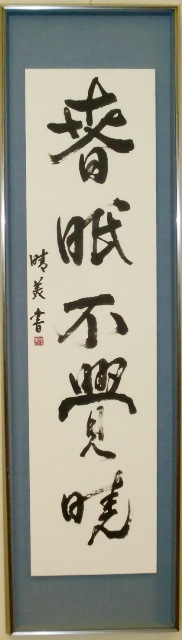 春眠不覺曉
晴美書